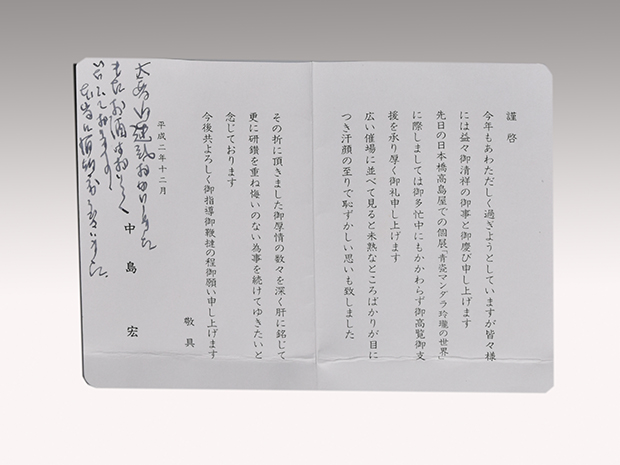 謹啓
今年もあわただしく過ぎようとしていますが皆々様
には益々御清祥の御事と御慶び申し上げます
先日の日本橋高島屋での個展「青瓷マンダラ玲瓏の世界」
に際しましては御多忙中にもかかわらず御高覧御支
援を承り厚く御礼申し上げます
広い催場に並べて見ると未熟なところばかりが目に
つき汗顔の至りで恥ずかしい思いも致しました
その折に頂きました御厚情の数々を深く肝に銘じて
更に研鑽を重ね悔いのない為事を続けてゆきたいと
念じております
今後共よろしく御指導御鞭撻の程御願い申し上げます
敬具
平成二年十二月
中島宏